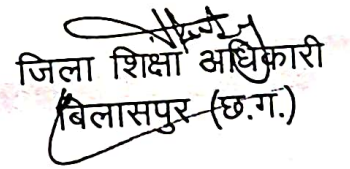 जिला शिक्षा अधिकारी
बिलासपुर (छ.ग.)